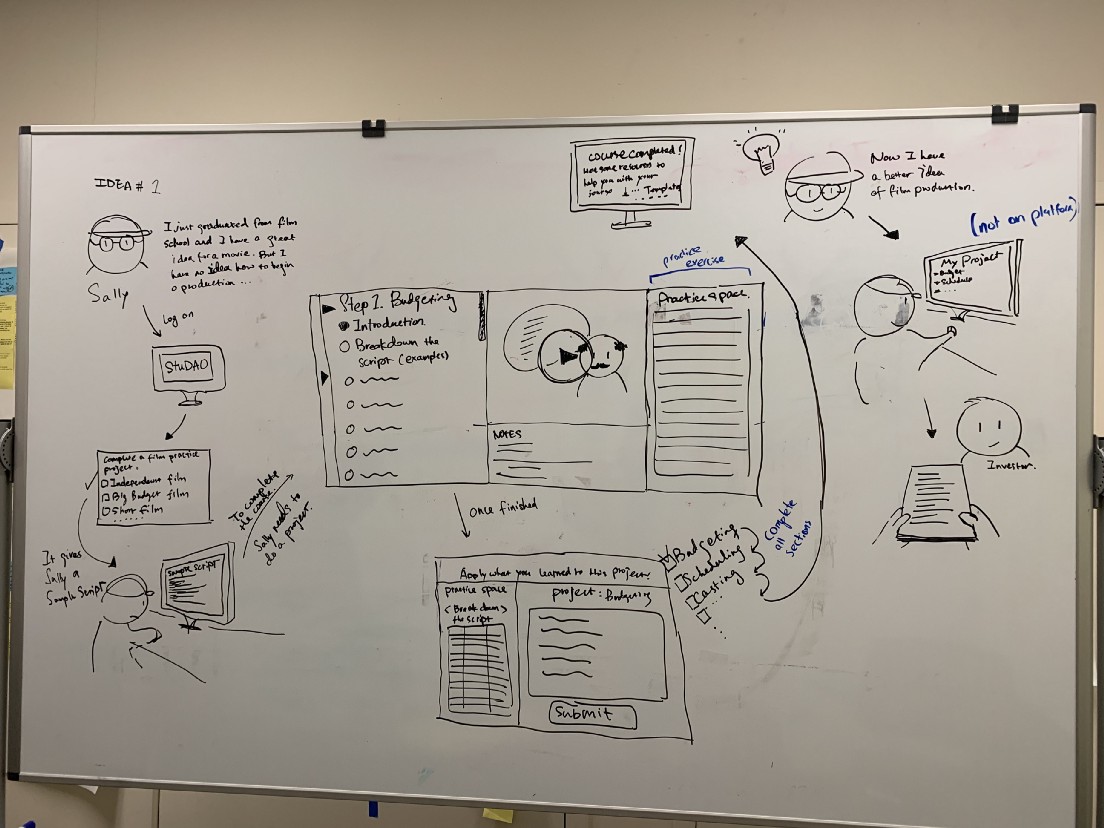 IDEA # 1
I just graduated from film
school and I have a great
idea for a movie. But I
have no idea how to begin
a production ...
Sally
Log on
StuDAO
Complete a film practice
project.
Independent film
Big Budget film
Short film
.....
It gives
Sally a
Sample Script
Sample Script
To complete
the course
Sally needs to
do a project.
Step 1. Budgeting
Introduction
Breakdown the
script (examples)
NOTES
practice
exercise
Practice space
once finished
Apply what you learned to this project!
practice space
<Breakdown>
the script
project: Budgeting
Submit
Budgeting
Scheduling
Casting
...
Complete
all
sections
course completed!
Here some resources to
help you with your
... Template
Now I have
a better idea
of film production.
(not on platform)
My Project
Budget
Schedule
...
Investor.